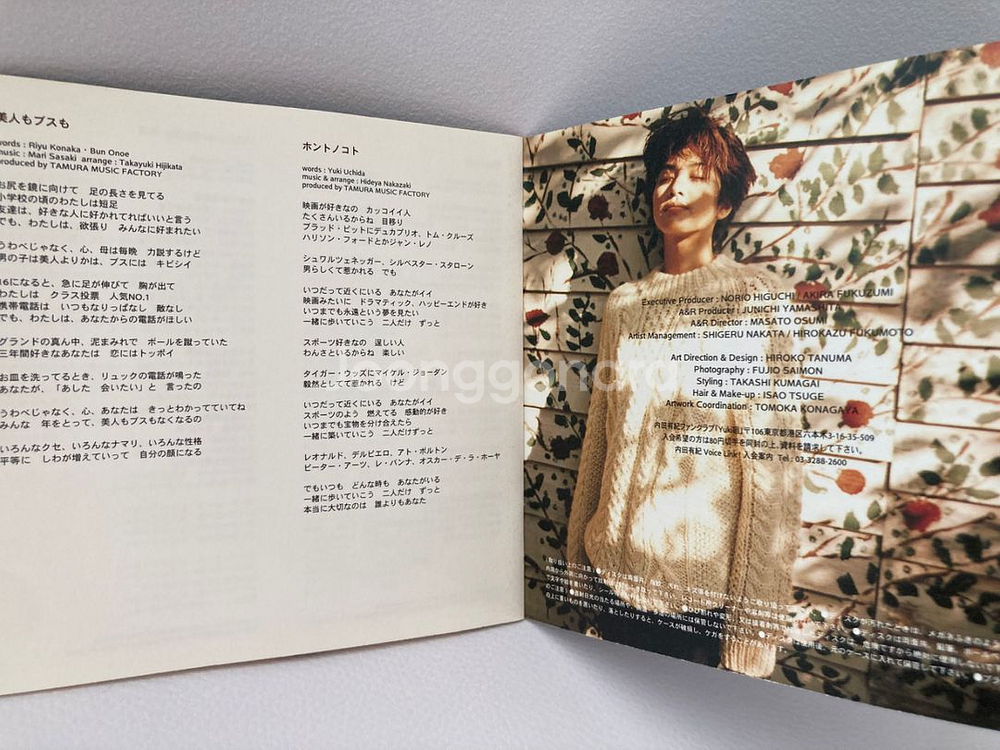 美人もブスも
words : Riyu Konaka・Bun Onoe
music : Mari Sasaki arrange : Takayuki Hijikata
produced by TAMURA MUSIC FACTORY
お尻を鏡に向けて 足の長さを見てる
小学校の頃のわたしは短足
友達は、好きな人に好かれてればいいと言う
でも、わたしは、欲張り みんなに好まれたい
うわべじゃなく、心、母は毎晩 力説するけど
男の子は美人よりかは、ブスには キビシイ
16になると、急に足が伸びて 胸が出て
わたしは クラス投票 人気NO,1
携帯電話は いつもなりっぱなし 敵なし
でも、わたしは、あなたからの電話がほしい
グランドの真ん中、泥まみれで ボールを蹴っていた
三年間好きなあなたは 恋にはトッポイ
お皿を洗ってるとき、リュックの電話が鳴った
あなたが、「あした 会いたい」と 言ったの
うわべじゃなく、心、あなたは きっとわかってていてね
みんな 年をとって、美人もブスもなくなるの
いろんなクセ、いろんなナマリ、いろんな性格
平等に しわが増えていって 自分の顔になる
ホントノコト
words : Yuki Uchida
music & arrange : Hideya Nakazaki
produced by TAMURA MUSIC FACTORY
映画が好きなの カッコイイ人
たくさんいるからね 目移り
ブラッド・ピットにデュカプリオ、トム・クルーズ
ハリソン・フォードとかジャン・レノ
シュワルツェネッガー、シルベスター・スタローン
男らしくて惹かれる でも
いつだって近くにいる あなたがイイ
映画みたいに ドラマティック、ハッピーエンドが好き
いつまでも永遠という夢を見たい
一緒に歩いていこう 二人だけ ずっと
スポーツ好きなの 逞しい人
わんさといるからね 楽しい
タイガー・ウッズにマイケル・ジョーダン
毅然としてて惹かれる けど
いつだって近くにいる あなたがイイ
スポーツのよう 燃えてる 感動的が好き
いつまでも宝物を分け合えたら
一緒に築いていこう 二人だけずっと
レオナルド、デルピエロ、アト・ボルトン
ピーター・アーツ、レ・バンナ、オスカー・デ・ラ・ホーヤ
でもいつも どんな時も あなたがいる
一緒に歩いていこう 二人だけ ずっと
本当に大切なのは 誰よりもあなた
Executive Producer : NORIO HIGUCHI / AKIRA FUKUZUMI
A&R Producer : JUNICHI YAMASHITA
A&R Director : MASATO OSUMI
Artist Management : SHIGERU NAKATA / HIROKAZU FUKUMOTO
Art Direction & Design : HIROKO TANUMA
Photography : FUJIO SAIMON
Styling : TAKASHI KUMAGAI
Hair & Make-up : ISAO TSUGE
Artwork Coordination : TOMOKA KONAGAYA
内田有紀ファンクラブ「Yuki組」〒106東京都港区六本木3-16-35-509
入会希望の方は80円切手を同封の上、資料を請求して下さい。
内田有紀 Voice Link! 入会案内 Tel : 03-3288-2600